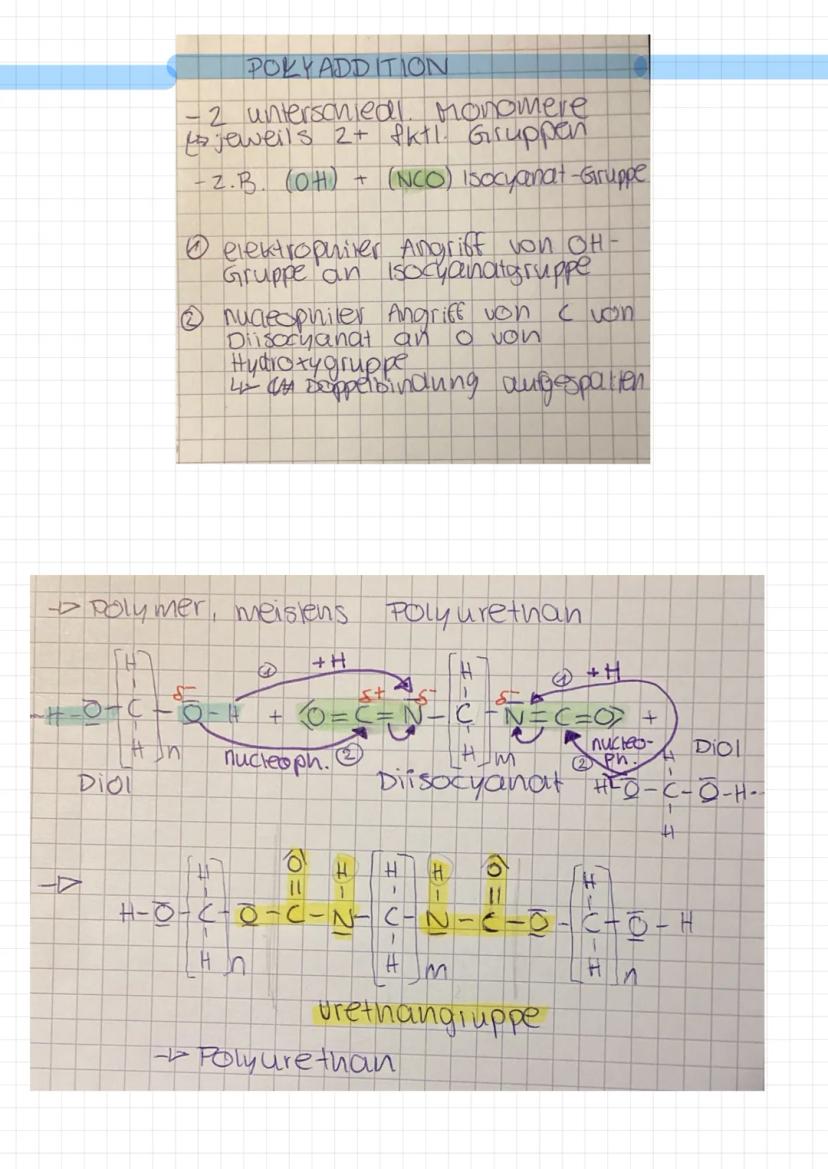 POLYADDITION
- 2 unterschiedl. Monomere
↳ jeweils 2+ fktl. Gruppen
- z.B. (OH) + (NCO) Isocyanat-Gruppe
① elektrophiler Angriff von OH-
Gruppe an Isocyanatgruppe
② nucleophiler Angriff von C von
Diisocyanat an O von
Hydroxygruppe
↳ Doppelbindung aufgespalten
→ Polymer, meistens Polyurethan
① +H ① +H
[H] [H]
δ- δ+ δ- δ-
H-O-C-O-H + ⟨O=C=N-C-N=C=O⟩ +
[H]n nucleoph. ② [H]m ② nucleoph. H Diol
Diol Diisocyanat H-O-C-O-H..
H
O H H H O
[H] || | | | || [H]
→ H-O-C-O-C-N-C-N-C-O-C-O-H
[H]n [H]m [H]n
Urethangruppe
→ Polyurethan